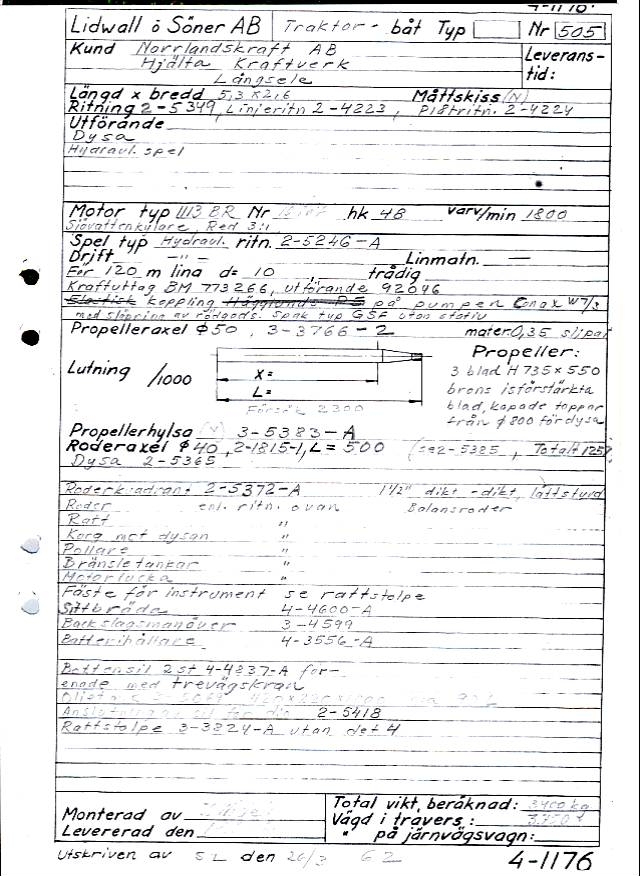 4-1176.
Lidwall ö Söner AB Traktor - båt Typ Nr 505
Kund Norrlandskraft AB Leverans-
Hjälta Kraftverk tid:
Långsele
Längd x bredd 5,3 x 2,6 Måttskiss (N)
Ritning 2-5349, Linjeritn 2-4223, Plåtritn. 2-4224
Utförande
Dysa
Hydraul. spel
Motor typ 1113 BR Nr hk 48 varv/min 1800
Sjövattenkylare, Red 3:1
Spel typ Hydraul. ritn. 2-5246-A
Drift -"- Linmatn. —
För 120 m lina d= 10 , trådig
Kraftuttag BM 773266, utförande 92046
Elastisk koppling Hägglunds på pumpen Conax W7/8
med slöpring av rödgods. Spak typ GSF utan stativ
Propelleraxel Φ50 , 3-3766-2 mater. 0,35 slipat
Lutning /1000
X=
L=
Försök 2300
Propeller:
3 blad H 735 x 550
brons isförstärkta
blad, kapade toppar
från Φ 800 för dysa
Propellerhylsa (V) 3-5383-A
Roderaxel Φ40, 2-1815-1, L= 500 (se 2-5385 , Totalt 1257
Dysa 2-5365
Roderkvadrant 2-5372-A 1 1/2" dikt-dikt, lättstyrd
Roder enl. ritn. ovan Balansroder
Ratt "
Korg mot dysan "
Pollare "
Bränsletankar "
Motorlucka "
Fäste för instrument se rattstolpe
Sittbräde 4-4600-A
Backslagsmanöver 3-4599
Batterihållare 4-3556-A
Bottensil 2 st 4-4837-A för-
enade med trevägskran
2-5418
Rattstolpe 3-3824-A utan det 4
Monterad av
Levererad den
Total vikt, beräknad: 3400 kg
Vägd i travers :
" på järnvägsvagn:
Utskriven av SL den 26/3 62 4-1176